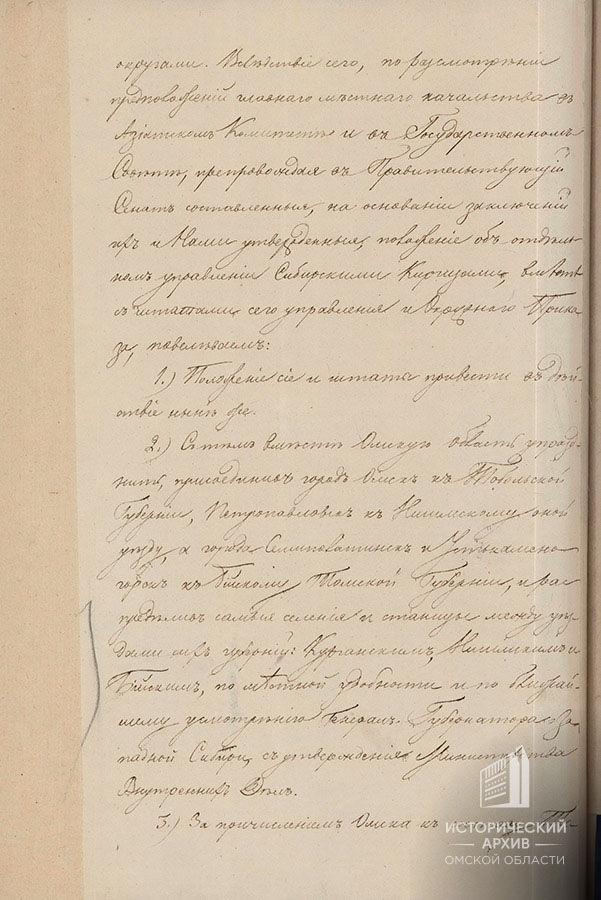 округами. Вслѣдствіе сего, по разсмотрѣніи
предположеній главнаго мѣстнаго начальства въ
Азіятскомъ Комитетѣ и въ Государственномъ
Совѣтѣ, препровождая въ Правительствующій
Сенатъ составленныя, на основаніи заключеній
ихъ и Нами утвержденныя, положеніе объ отдѣль-
номъ управленіи Сибирскими Киргизами, вмѣстѣ
съ штатами сего управленія и Окружнаго Прика-
за, повелѣваемъ:
1.) Положеніе сіе и штатъ привести въ дѣй-
ствіе нынѣ же.
2.) Съ тѣмъ вмѣстѣ Омскую область упразд-
нить, присоединивъ городъ Омскъ къ Тобольской
Губерніи, Петропавловскъ къ Ишимскому оной
уѣзду, а города Семипалатинскъ и Устькамено-
горскъ къ Бійскому Томской Губерніи, и рас-
предѣливъ самыя селенія и станицы между уѣз-
дами сихъ губерній: Курганскимъ, Ишимскимъ и
Бійскимъ, по мѣстной удобности и по ближай-
шему усмотрѣнію Генералъ-Губернатора За-
падной Сибири, съ утвержденія Министерства
Внутреннихъ Дѣлъ.
3.) За причисленіемъ Омска къ
ИСТОРИЧЕСКИЙ
АРХИВ
ОМСКОЙ ОБЛАСТИ